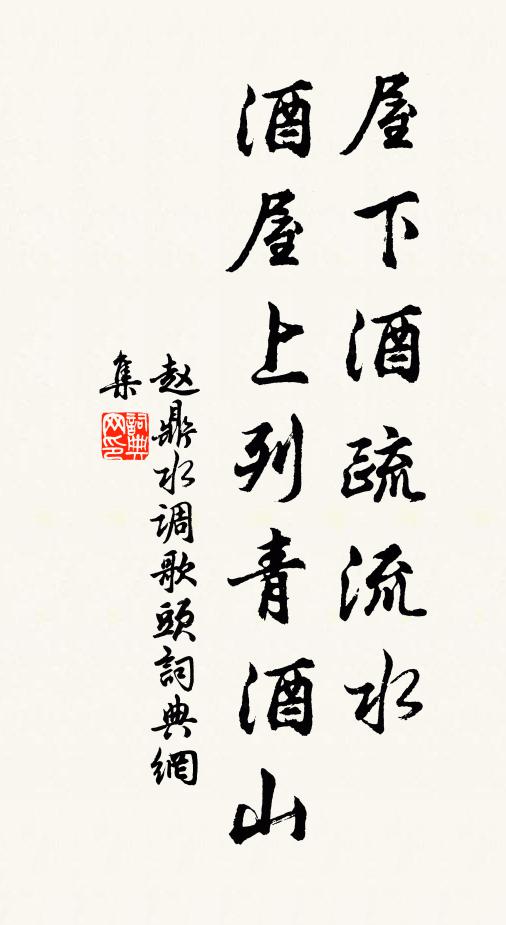 屋下酒疏流水
酒屋上列青酒山
赵鼎水调歌头詞典網
集
詞典网印